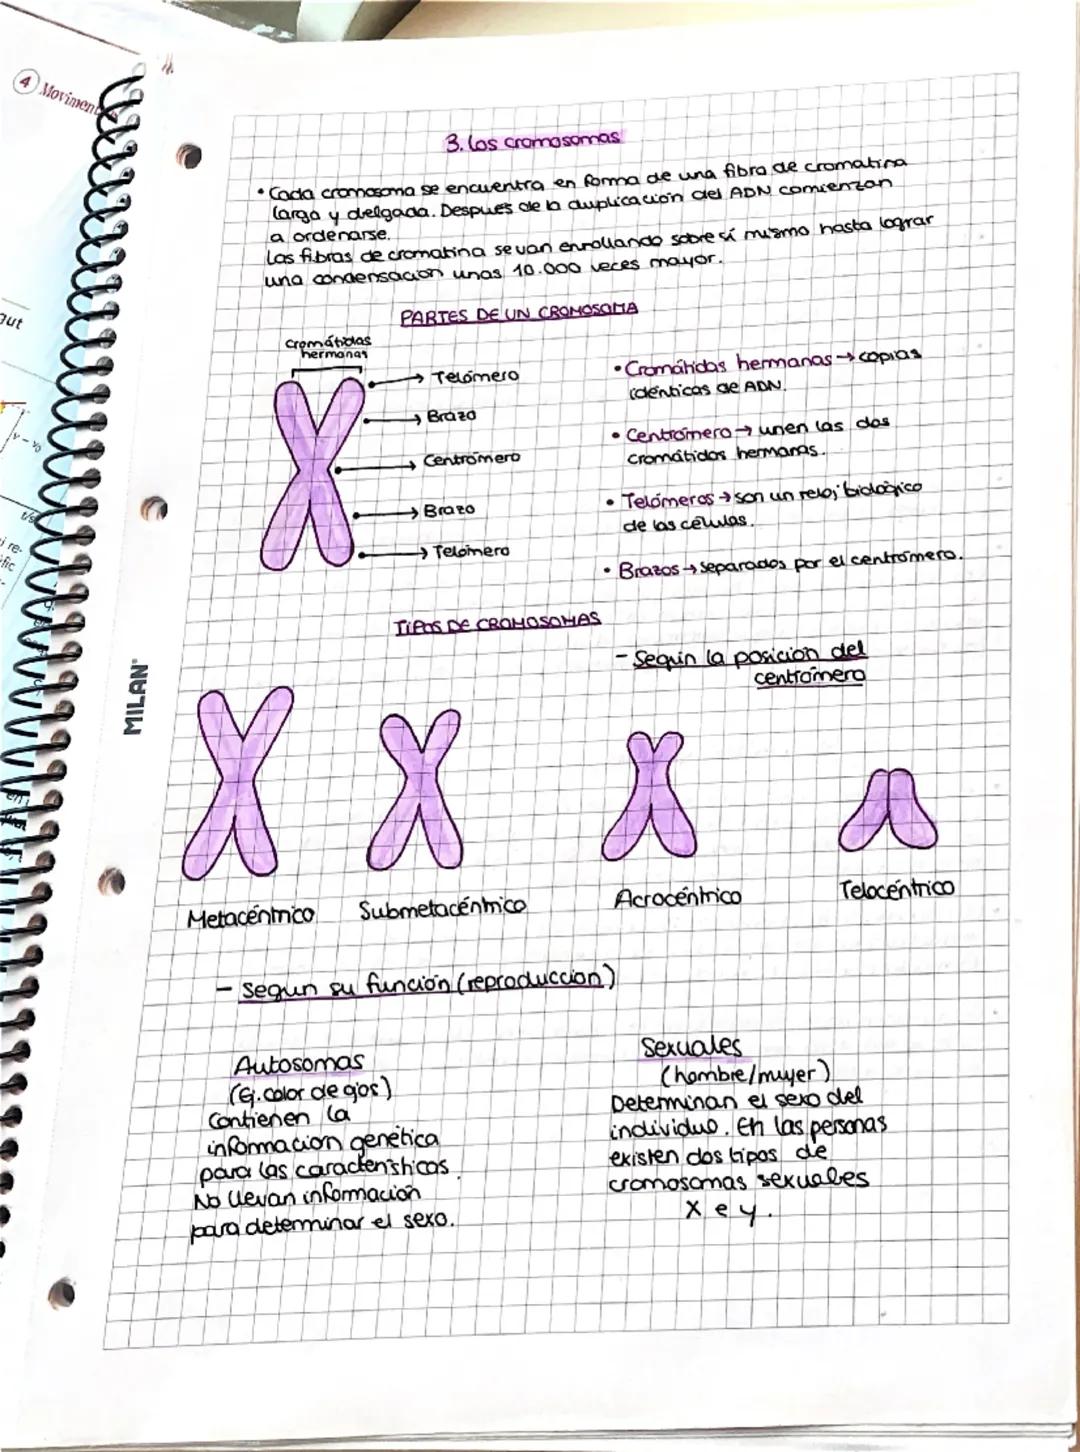 4 Moviment
gut
MILAN
3. Los cromosomas
• Cada cromosoma se encuentra en forma de una fibra de cromatina
larga y delgada. Despues de la duplicación del ADN comienzan
a ordenarse.
Las fibras de cromatina se van enrollando sobre sí mismo hasta lograr
una condensación unas 10.000 veces mayor.
PARTES DE UN CROMOSOMA
cromátidas
hermanas
→ Telómero
→ Brazo
→ Centrómero
→ Brazo
→ Telómero
• Cromátidas hermanas → copias
idénticas de ADN.
• Centrómero → unen las dos
cromátidas hermanas.
• Telómeros → son un reloj biológico
de las células.
• Brazos → separados por el centrómero.
TIPOS DE CROMOSOMAS
- Según la posición del
centrómero
Metacéntrico
Submetacéntrico
Acrocéntrico
Telocéntrico
- Según su función (reproduccion)
Autosomas
(Ej. color de ojos)
Contienen la
información genética
para las características.
No llevan información
para determinar el sexo.
Sexuales
(hombre/mujer)
Determinan el sexo del
individuo. En las personas
existen dos tipos de
cromosomas sexuales
X e y.